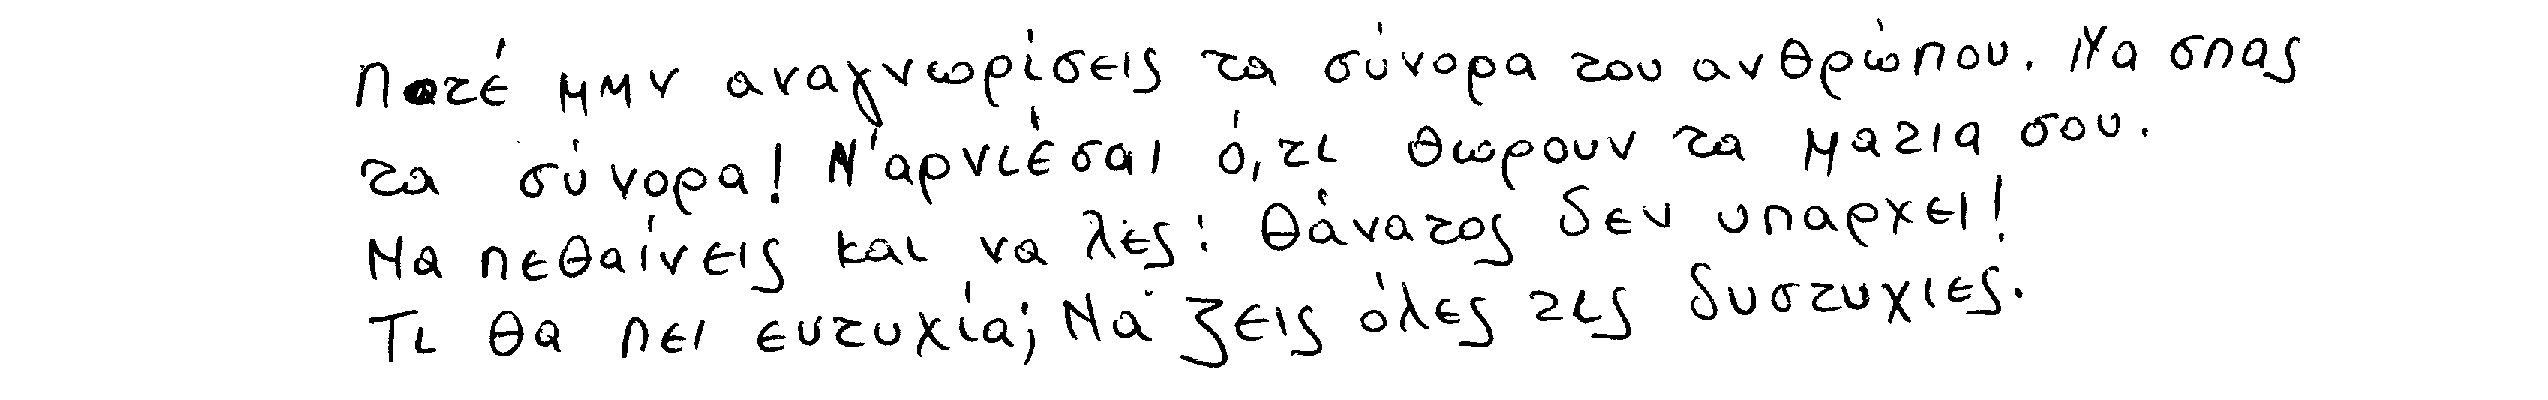 Ποτέ μην αναγνωρίσεις τα σύνορα του ανθρώπου. Να σπας
τα σύνορα! Ν'αρνιέσαι ό,τι θωρουν τα ματια σου.
Να πεθαίνεις και να λες: Θάνατος δεν υπαρχει!
Τι θα πει ευτυχία; Να ζεις όλες τις δυστυχιες.